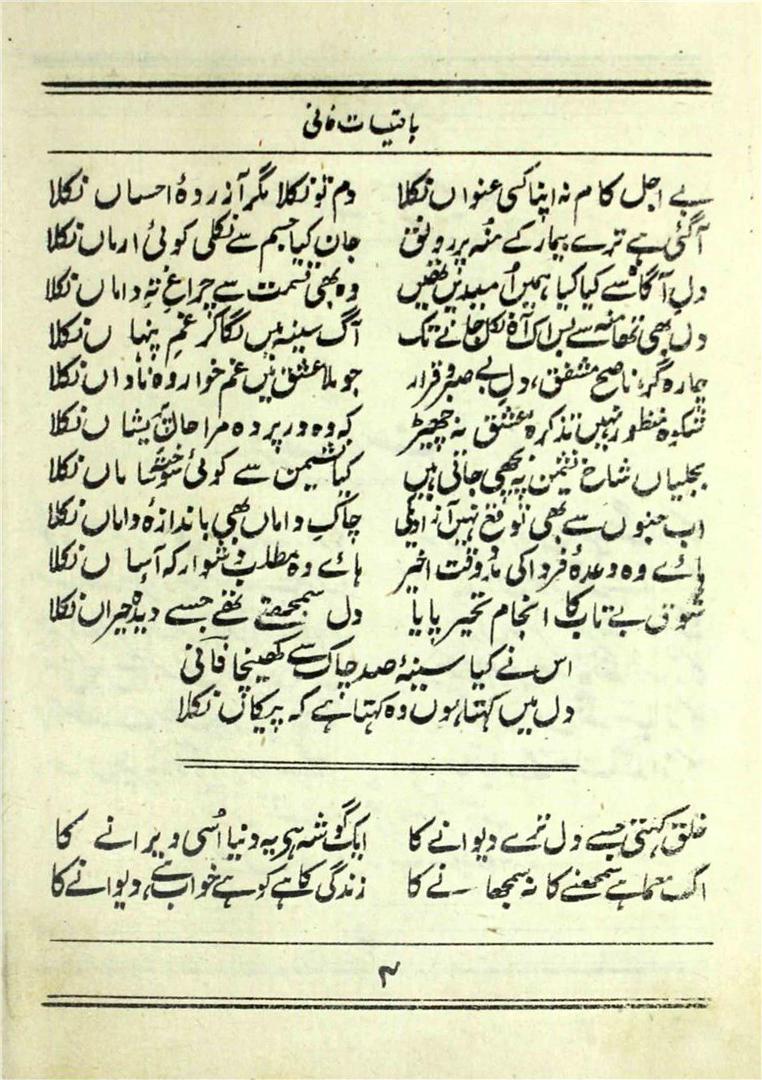 باقیات فانی
بے اجل کام نہ اپنا کسی عنواں نکلا دم تو نکلا مگر آزردۂ احساں نکلا
آگئی ہے ترے بیمار کے منہ پر رونق جان کیا جسم سے نکلی کوئی ارماں نکلا
دلِ آگاہ سے کیا کیا ہمیں اُمیدیں تھیں وہ بھی قسمت سے چراغِ تہِ داماں نکلا
دل بھی تھامنہ سے بس اک آہ نکل جانے تک آگ سینہ میں لگا کر غمِ پنہاں نکلا
چارہ گر، ناصح مشفق، دلِ بے صبر و قرار جو ملا عشق میں غم خوار وہ ناداں نکلا
شکوہ منظور نہیں تذکرہ عشق نہ چھیڑ کہ وہ در پردہ مرا حال پریشاں نکلا
بجلیاں شاخ نشیمن پہ بچھی جاتی ہیں کیا نشیمن سے کوئی سوختہ ساماں نکلا
اب جنوں سے بھی توقع نہیں آزادی کی چاکِ داماں بھی باندازۂ داماں نکلا
ہائے وہ وعدۂ فردا کی مدد وقت اخیر ہائے وہ مطلب دشوار کہ آساں نکلا
شوق بے تاب کا انجام تحیر پایا دل سمجھتے تھے جسے دیدۂ حیراں نکلا
اس نے کیا سینۂ صد چاک سے کھینچا فانی
دل میں کہتا ہوں وہ کہتا ہے کہ پیکاں نکلا
خلق کہتی ہے جسے دل ترے دیوانے کا ایک گوشہ ہے یہ دنیا اُسی ویرانے کا
اک معما ہے سمجھنے کا نہ سمجھانے کا زندگی کاہے کو ہے خواب ہے دیوانے کا
۳